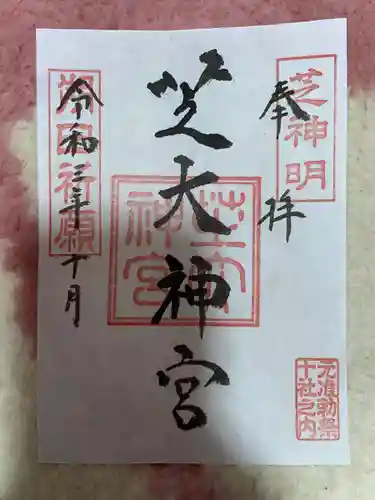 奉拝
芝神明
芝大神宮
芝大神宮
令和三年十月
元准勅祭
十社之内